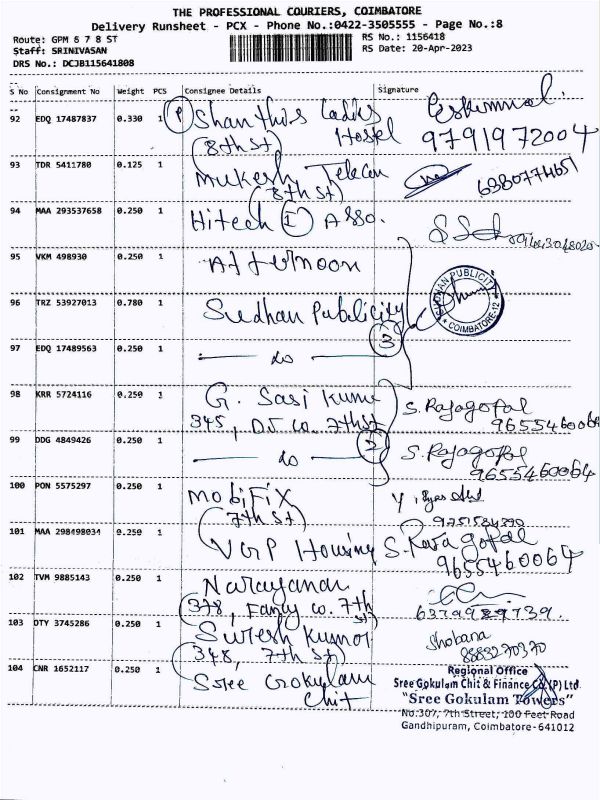 THE PROFESSIONAL COURIERS, COIMBATORE
Delivery Runsheet - PCX - Phone No.:0422-3505555 - Page No.:8
Route: GPM 6 7 8 ST
RS No.: 1156418
Staff: SRINIVASAN
RS Date: 20-Apr-2023
DRS No.: DCJB115641808
S No Consignment No Weight PCS Consignee Details Signature
92 EDQ 17487837 0.330 1 Shanthis Ladies
Hostel 9791972004
(8th St)
93 TDR 5411780 0.125 1 Mukesh Telecom
(8th St) 6380774651
94 MAA 293537658 0.250 1 Hitech I Asso.
95 VKM 498930 0.250 1 Afternoon
96 TRZ 53927013 0.780 1 Sudhan Publicity
SUDHAN PUBLICITY
COIMBATORE-12
3
97 EDQ 17489563 0.250 1 do
98 KRR 5724116 0.250 1 G. Sasi Kumar S. Rajagopal
345, 7th st 9655460064
99 DDG 4849426 0.250 1 do 2 S. Rajagopal
9655460064
100 PON 5575297 0.250 1 Mobifix
(7th St)
101 MAA 298498034 0.250 1 VGP Housing S. Rajagopal
9655460064
102 TVM 9885143 0.250 1 Narayanan
(378, Family co. 7th st) 6379989739
103 DTY 3745286 0.250 1 Suresh Kumar Shobana
(348, 7th St) 8883270370
104 CNR 1652117 0.250 1 Sree Gokulam
Chit
Regional Office
Sree Gokulam Chit & Finance Co.(P) Ltd.
"Sree Gokulam Towers"
No.307, 7th Street, 100 Feet Road
Gandhipuram, Coimbatore-641012